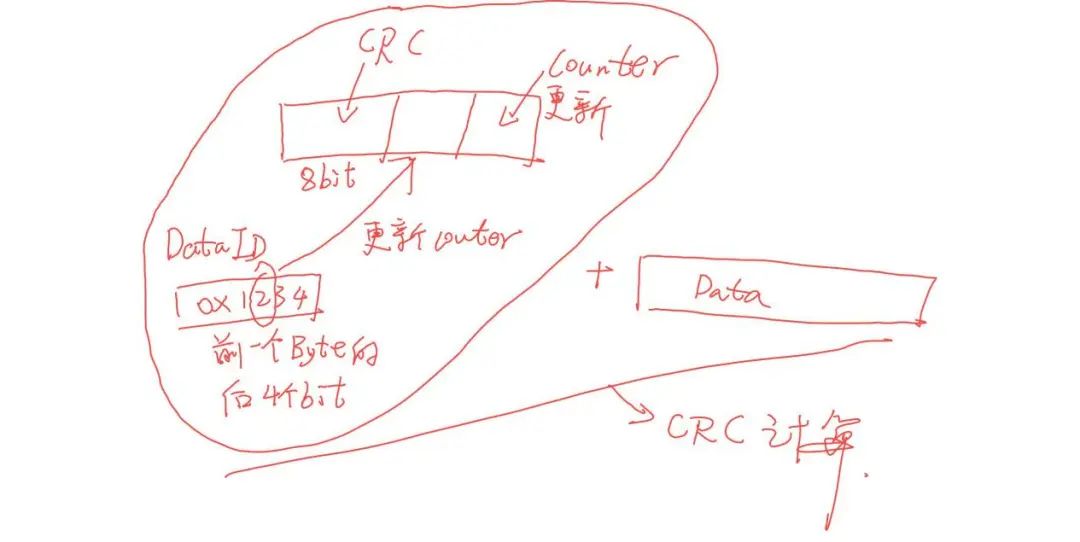 CRC
Counter
更新
8bit
更新 couter
DataID
0x1234
前一个Byte的
后4个bit
+ Data
CRC 计算